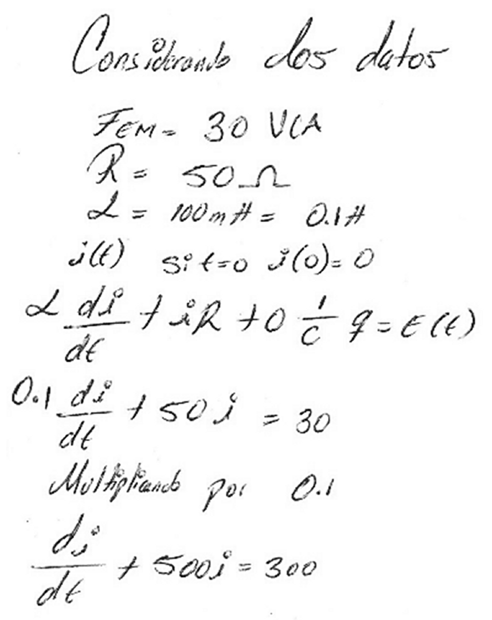 Considerando los datos
FEM = 30 VCA
R = 50 Ω
L = 100mH = 0.1H
i(t) si t=0 i(0)=0
L di/dt + iR + 0 1/c q = E(t)
0.1 di/dt + 50i = 30
Multiplicando por 0.1
di/dt + 500i = 300